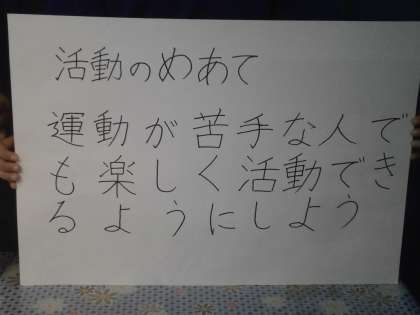 活動のめあて
運動が苦手な人で
も楽しく活動でき
るようにしよう